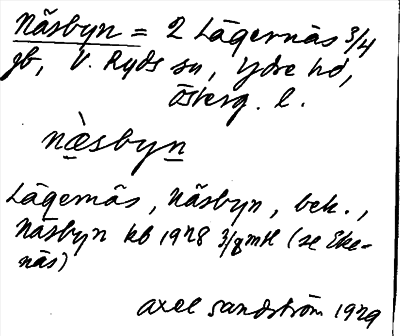 Näsbyn = 2 Lägernäs 3/4
gb, V. Ryds sn, Ydre hd,
Österg. l.
næ̀sbyn
Lägernäs, Näsbyn, bek.,
Näsbyn kb 1928 3/8 mtl (se Eke-
näs)
Axel Sandström 1929